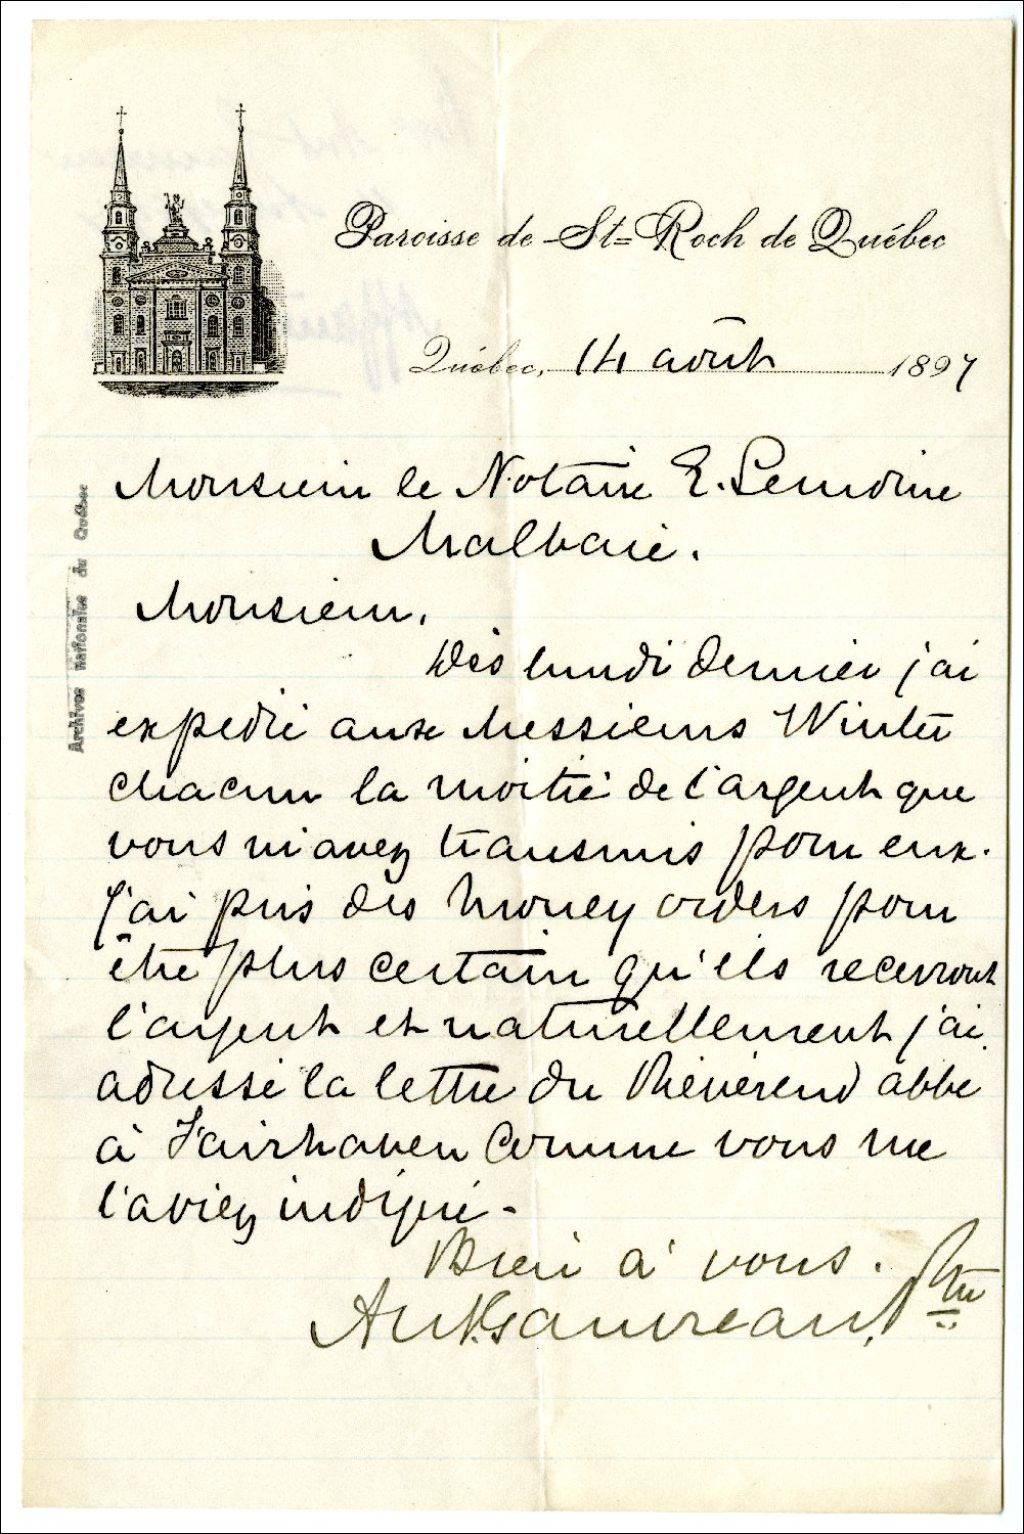 Paroisse de St=Roch de Québec
Québec, 14 août 1897
Archives nationales du Québec
Monsieur le Notaire E. Lemoine
Malbaie.
Monsieur,
Dès lundi dernier j'ai
expédié aux Messieurs Winter
chacun la moitié de l'argent que
vous m'avez transmis pour eux.
J'ai pris des money orders pour
être plus certain qu'ils recevront
l'argent et naturellement j'ai
adressé la lettre du Révérend abbé
à Fairhaven comme vous me
l'aviez indiqué -
Bien à vous.
Ant. Gauvreau, Ptre